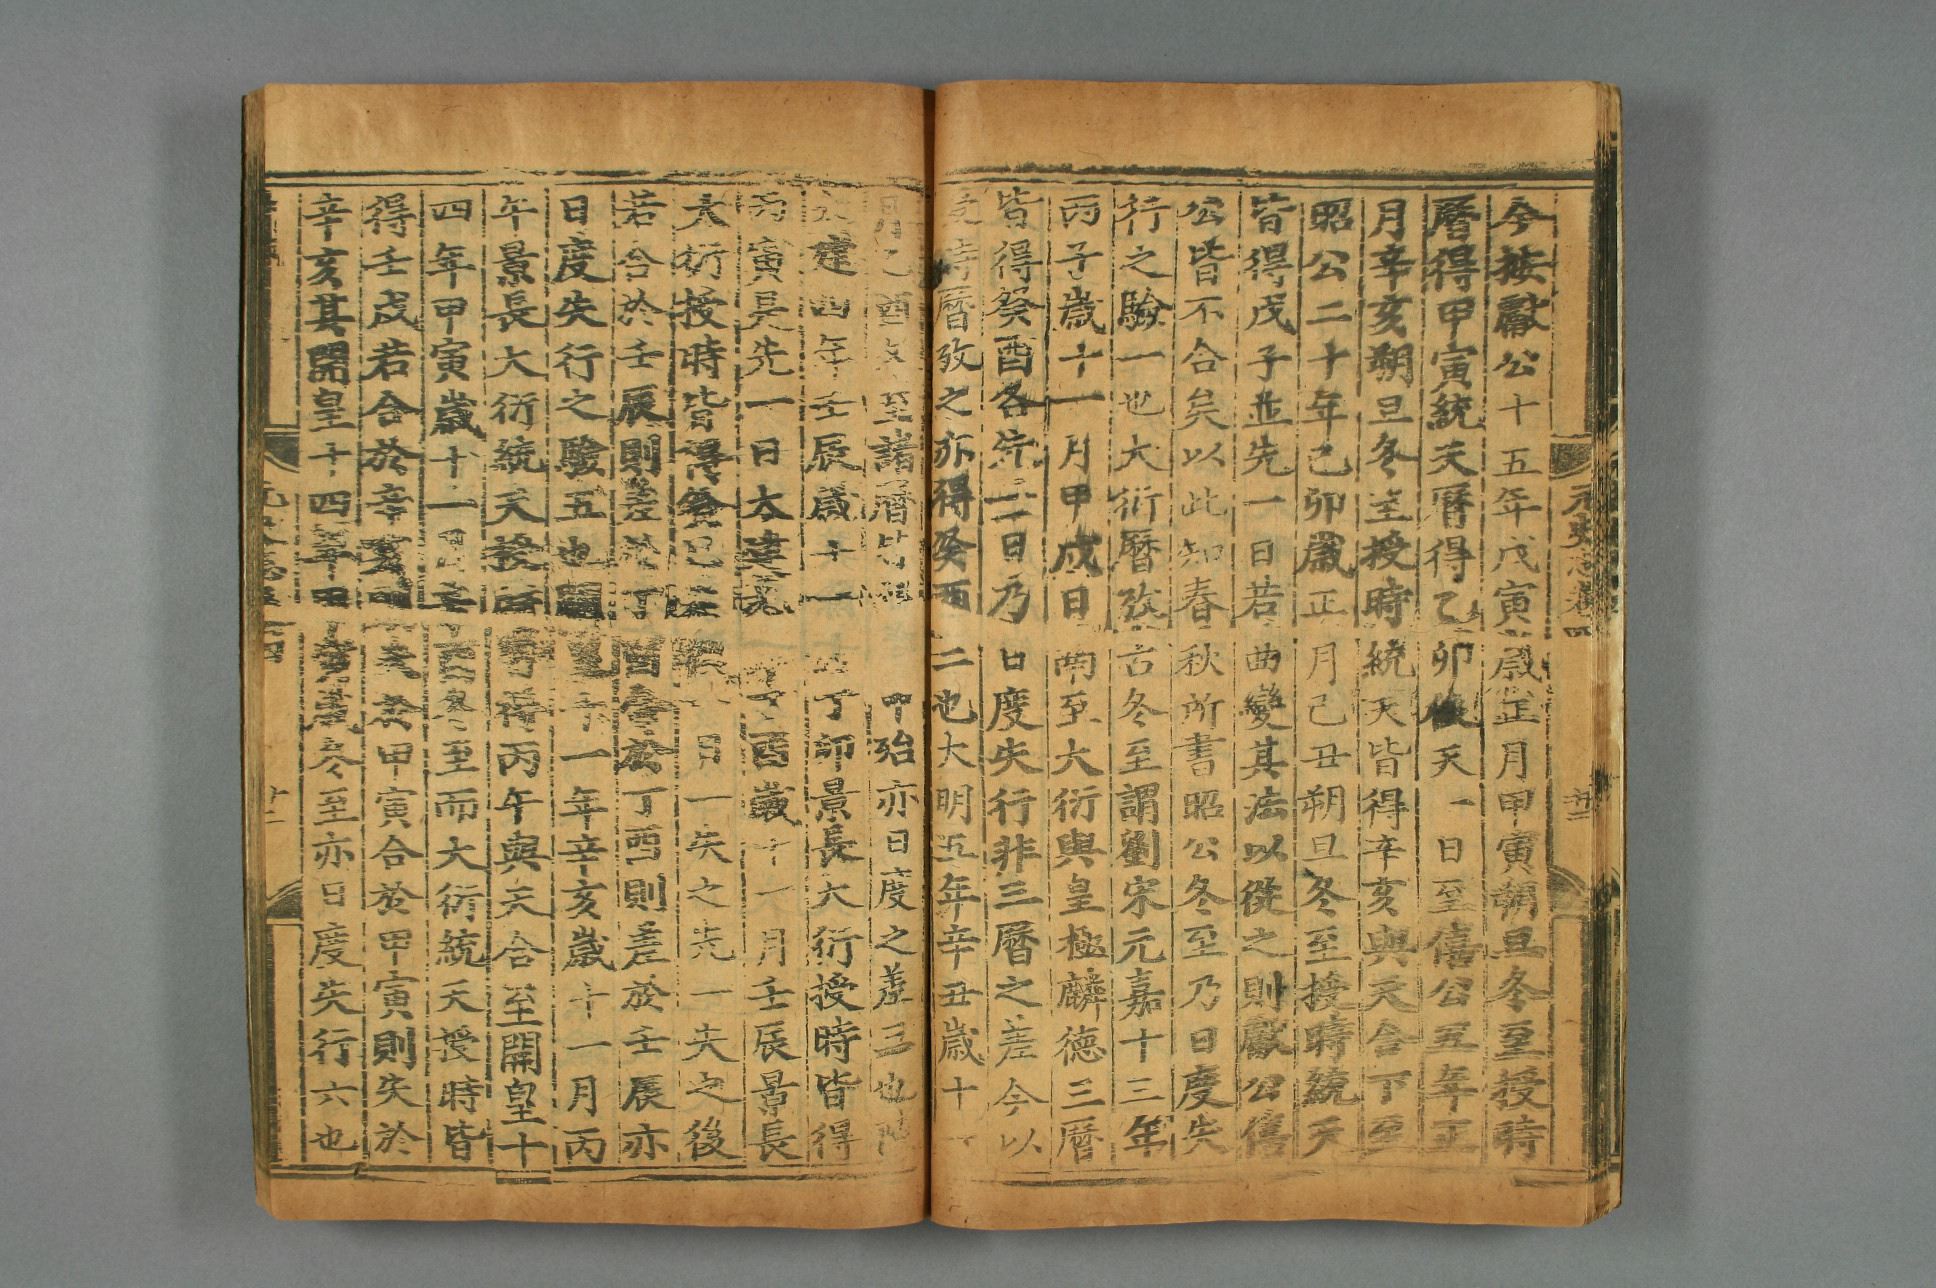 今按獻公十五年戊寅歲正月甲寅朔旦冬至授時
曆得甲寅統天曆得乙卯後天一日至僖公五年正
月辛亥朔旦冬至授時統天皆得辛亥與天合下至
昭公二十年己卯歲正月己丑朔旦冬至授時統天
皆得戊子並先一日若曲變其法以從之則獻公僖
公皆不合矣以此知春秋所書昭公冬至乃日度失
行之驗一也大衍曆攷古冬至謂劉宋元嘉十三年
丙子歲十一月甲戌日南至大衍與皇極麟德三曆
皆得癸酉各先一日乃日度失行非三曆之差今以
時曆攷之亦得癸酉二也大明五年辛丑歲十一
月乙酉冬至諸曆皆得甲殆亦日度之差三也陳
建四年壬辰歲十一丁卯景長大衍授時皆得
丙寅是先一日太建九丁酉歲十一月壬辰景長
大衍授時皆得癸巳月一失之先一失之後
若合於壬辰則差於丁酉合於丁酉則差於壬辰亦
日度失行之驗五也開皇十一年辛亥歲十一月丙
午景長大衍統天授時皆得丙午與天合至開皇十
四年甲寅歲十一月辛酉冬至而大衍統天授時皆
得壬戌若合於辛亥則失於甲寅合於甲寅則失於
辛亥其開皇十四年甲寅歲冬至亦日度失行六也
元史志卷四
廿二